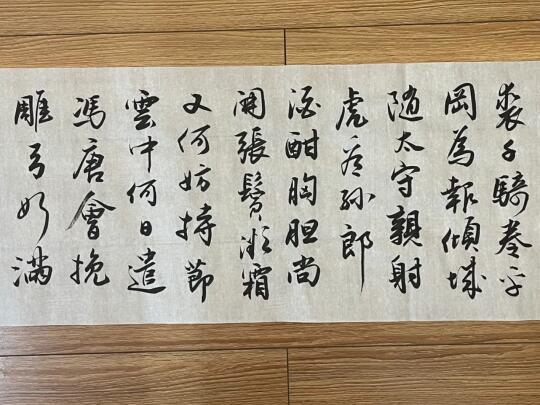 裘千騎卷平
岡為報傾城
随太守親射
虎看孫郎
酒酣胸胆尚
開張鬢微霜
又何妨持節
雲中何日遣
馮唐會挽
雕弓如満